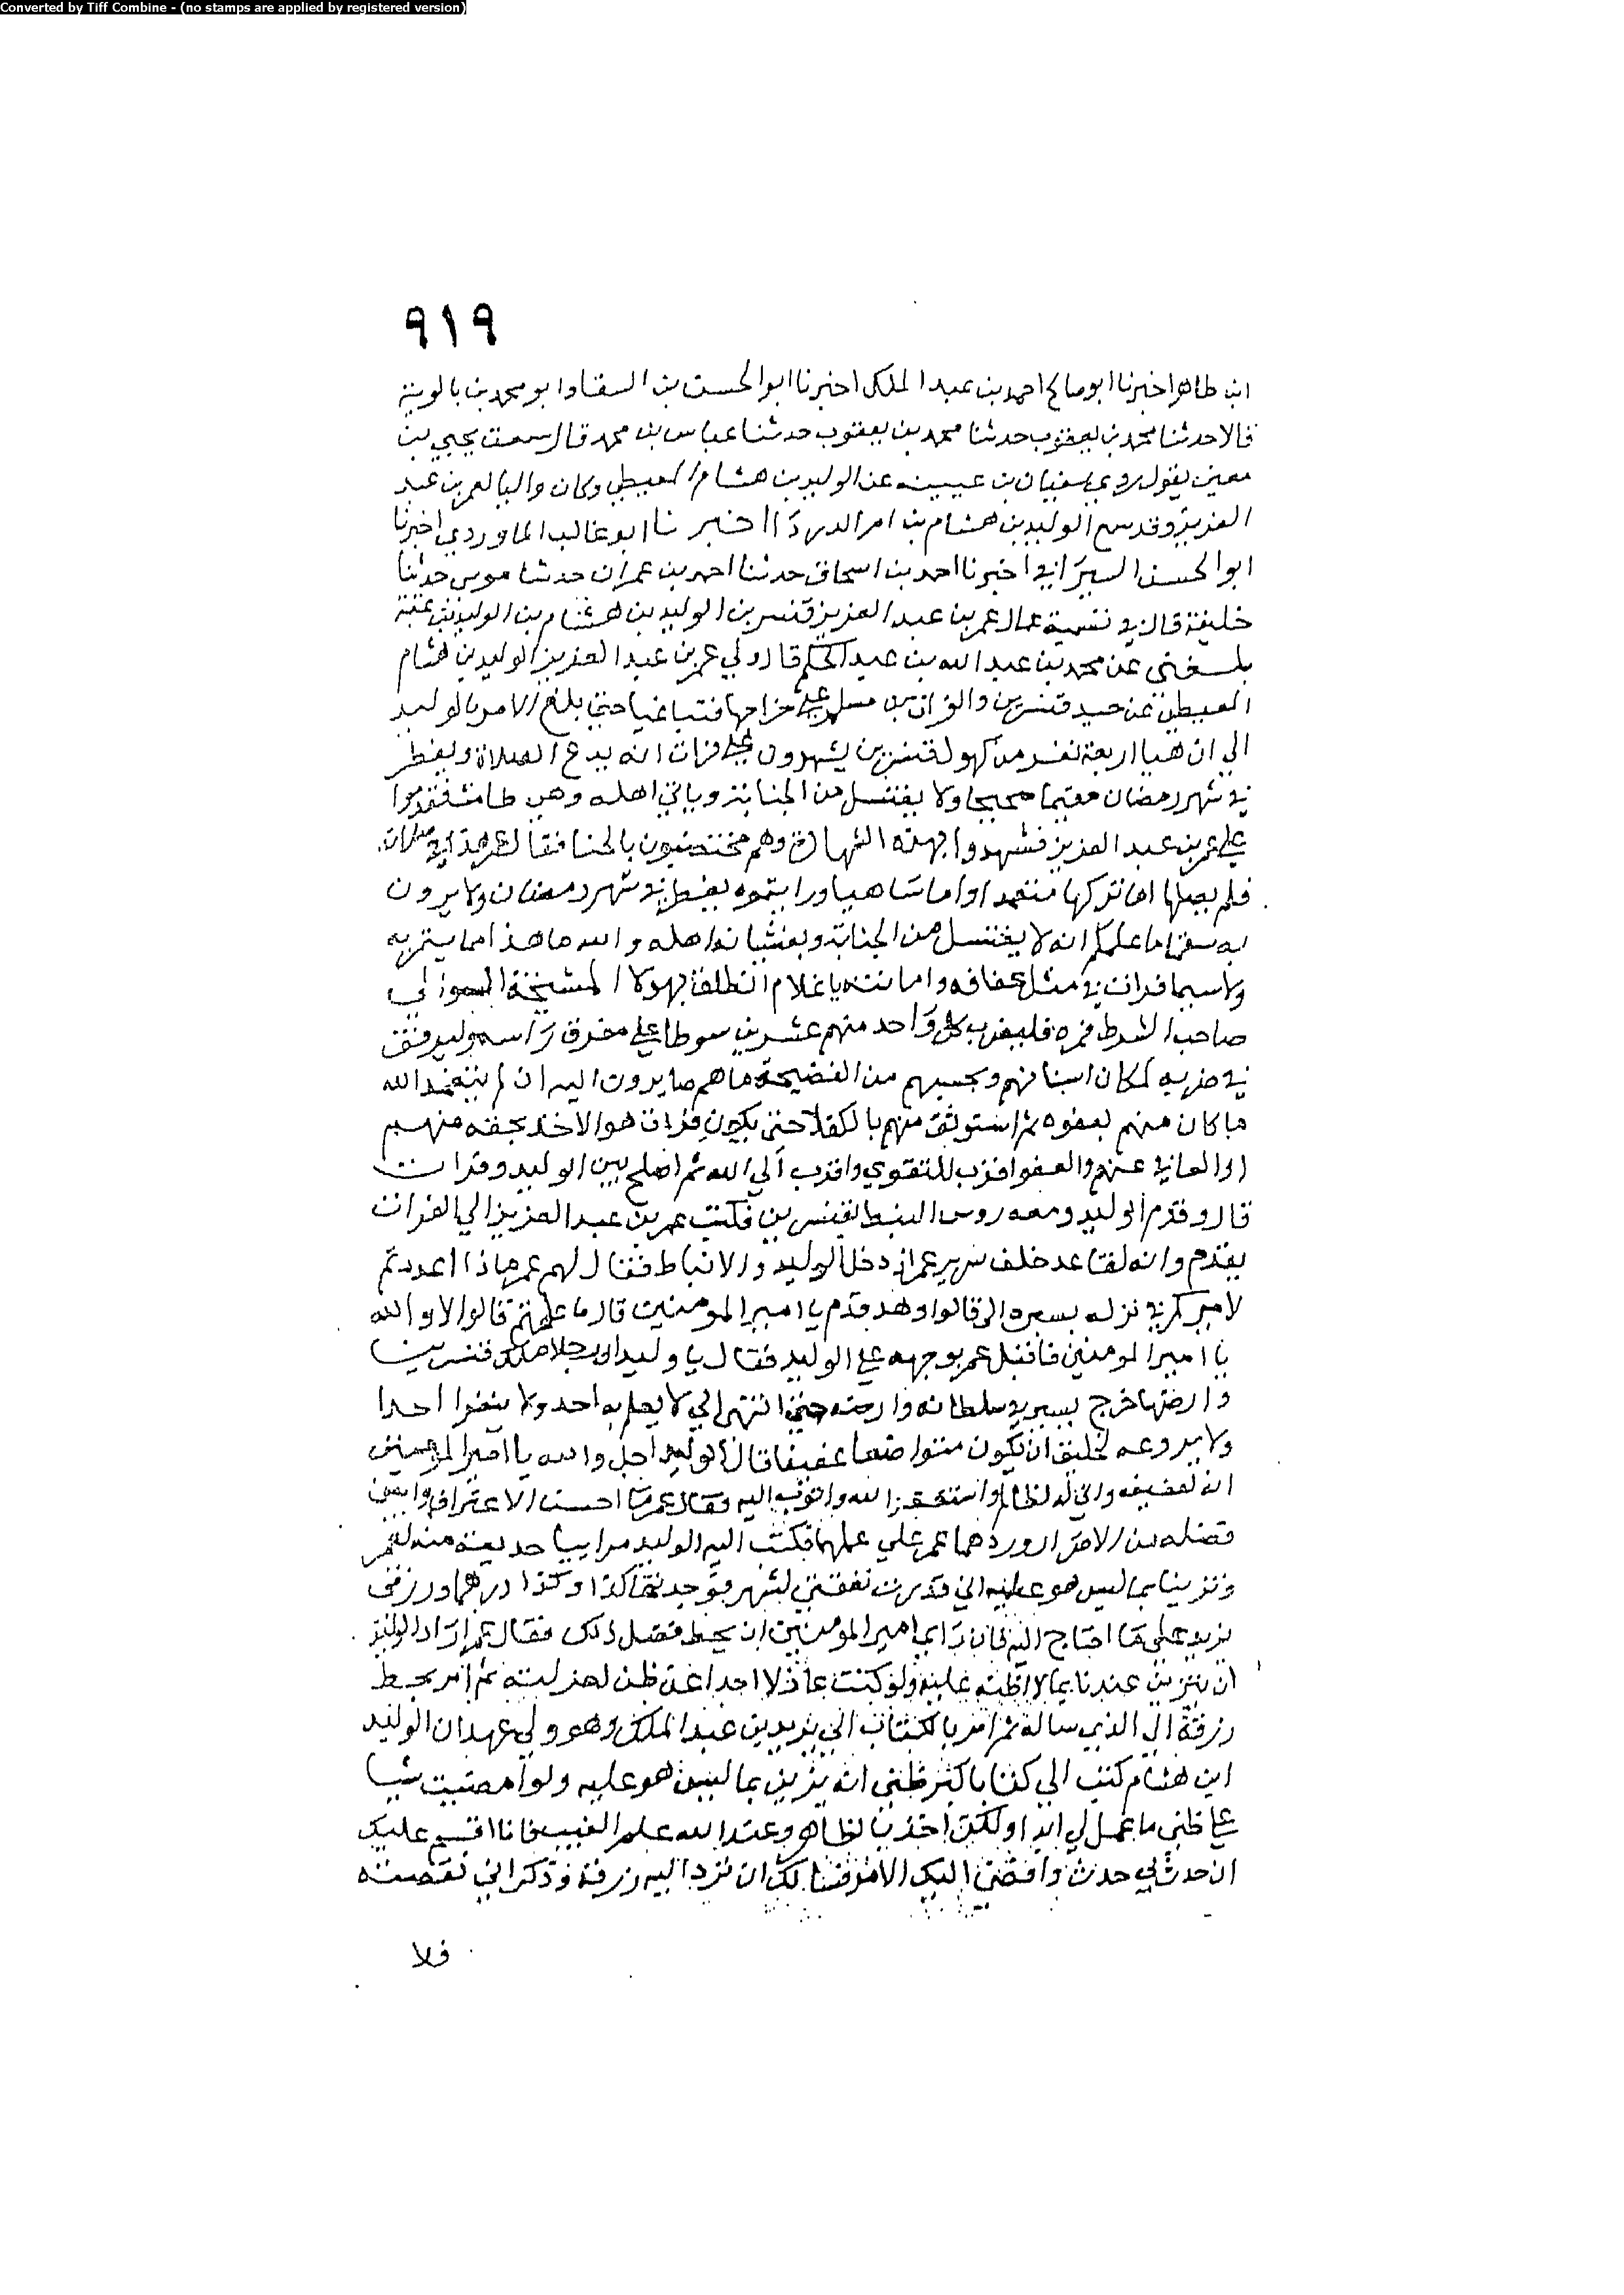 Converted by Tiff Combine - (no stamps are applied by registered version)
٩١٩
ابن طاهر اخبرنا ابو صالح احمد بن عبد الملك اخبرنا ابو الحسن بن السقا وابو محمد بن بالوية
قالا حدثنا محمد بن يعقوب حدثنا محمد بن يعقوب حدثنا عباس بن محمد قال سمعت يحيى بن
معين يقول روى سفيان بن عيينه عن الوليد بن هشام المعيطي وكان واليا لعمر بن عبد
العزيز وقد سمع الوليد بن هشام بن ام الدرداا اخبرنا ابو غالب الماوردي اخبرنا
ابو الحسن السيرافي اخبرنا احمد بن اسحاق حدثنا احمد بن عمران حدثنا موسى حدثنا
خليفة قال في تسمية عمال عمر بن عبد العزيز قنسرين الوليد بن هشام بن الوليد بن عقبة
بلغني عن محمد بن عبد الله بن عبد الحكم قال ولي عمر بن عبد العزيز الوليد بن هشام
المعيطي عن جند قنسرين والفرات بن مسلم على خراجها فتباغيا حتى بلغ الامر بالوليد
الى ان هيا اربعة نفر من كهول قنسرين يشهدون على فرات انه يدع الصلاة ويفطر
في شهر رمضان مقيما صحيحا ولا يغتسل من الجنابة وياتي اهله وهي طامث فقدموا
على عمر بن عبد العزيز فشهدوا بهذه الشهادة وهم مختضبون بالحنا فقال عمر
فلم يصلها اما تركها متعمدا واما ساهيا ورايتموه يفطر في شهر رمضان ولا يرون
به سقما ما علمكم انه لا يغتسل من الجنابة ويغشيانه اهله والله ما هذا مما يستر به
ولا سيما فرات في مثل عفافه وامانته يا غلام انطلق بهولا المشيخة السو الى
صاحب الشرط فمره فليضرب كل واحد منهم عشرين سوطا على مفرق راسه وليرفق
في ضربه لمكان اسنانهم وبحسبهم من الفضيحة ما هم صايرون اليه ان لم يتغمد الله
ما كان منهم بعفوه ثم استوثق منهم بالكفلا حتى يكون فرات هو الاخذ بحقه منهم
او العافي عنهم والعفو اقرب للتقوى واقرب الى الله ثم اصلح بين الوليد وفرات
قال وقدم الوليد ومعه روس النبط بقنسرين فكتب عمر بن عبد العزيز الى الفرات
يقدم وانه لقاعد خلف سرير عمر اذ دخل الوليد والانباط فقال لهم عمر ماذا اعددتم
لاميركم في نزله بسيره الي قالوا وهل قدم يا امير المومنين قال ما علمتم قالوا لا والله
يا امير المومنين فاقبل عمر بوجهه على الوليد فقال يا وليد ان رجلا ملك قنسرين
وارضها خرج يسير في سلطانه وارضه حتى انتهى الي لا يعلم به احد ولا ينفر احدا
ولا يروعه لخليق ان يكون متواضعا عفيفا قال الوليد اجل والله يا امير المومنين
انه لعفيف واني له لظالم واستغفر الله واتوب اليه فقال عمر ما احسن الاعتراف وابين
فضله من الاصرار وردهما عمر على عملهما فكتب اليه الوليد مرايبا خديعة منه لعمر
وتزينا بما ليس هو عليه اني قدرت نفقتي لشهر فوجدتها كذا وكذا درهما ورزقي
يزيد على ما احتاج اليه فان راى امير المومنين ان يحط فضل ذلك فقال عمر اراد الوليد
ان يتزين عندنا بما لا اظنه عليه ولو كنت عاذلا احدا عن ظن لعزلته ثم امر بحط
رزقه الى الذي ساله ثم امر بالكتاب الى يزيد بن عبد الملك وهو ولي عهد ان الوليد
ابن هشام كتب الي كتابا اكثر ظني انه يزين بما ليس هو عليه ولو امضيت شيا
على ظني ما عمل لي ابدا ولكن اخذ بالظاهر وعند الله علم الغيب فانا اقسم عليك
ان حدث بي حدث وافضى اليك الامر فسالك ان ترد اليه رزقه وذكر اني نقصته
فلا